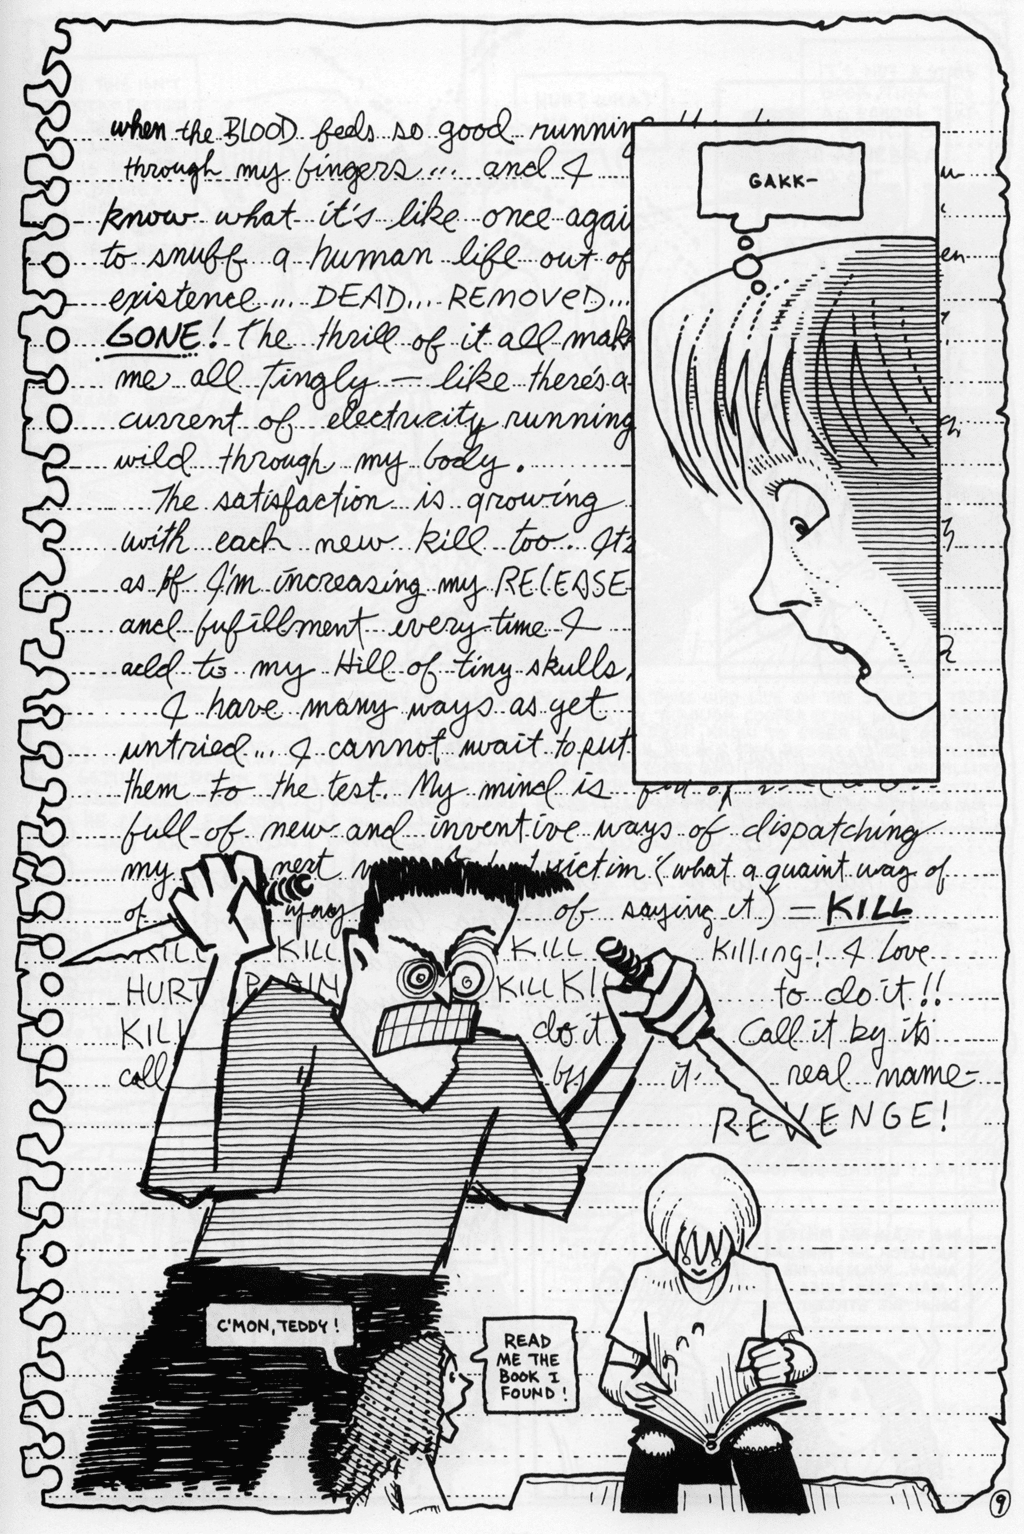 when the BLOOD feels so good running
through my fingers... and I
know what it's like once agai
to snuff a human life out of
existence... DEAD... REMOVED...
GONE! The thrill of it all mak
me all Tingly — like there's a
current of electricity running
wild through my body.
The satisfaction is growing
with each new kill too. It's
as if I'm increasing my RELEASE
and fufillment every time I
add to my Hill of tiny skulls.
I have many ways as yet
untried... I cannot wait to put
them to the test. My mind is
full of new and inventive ways of dispatching
my next victim (what a quaint way of
of of saying it) — KILL
KILL KILL KILL Killing! I Love
HURT PAIN KILL KI to do it!!
KILL do it Call it by its
call it real name—
REVENGE!
GAKK—
C'MON, TEDDY!
READ
ME THE
BOOK I
FOUND!
9